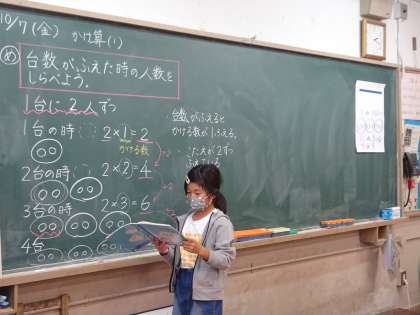 10/7(金) かけ算(1)
め 台数がふえた時の人数を
しらべよう。
1台に2人ずつ
1台の時 2×1=2
かける数
2台の時 2×2=4
3台の時 2×3=6
4台
・台数がふえると
かける数が1ふえる。
・こたえが2ずつ
ふえている